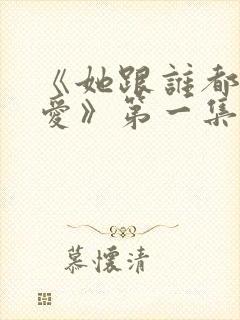 《她跟誰都
愛》第一集
慕懷清